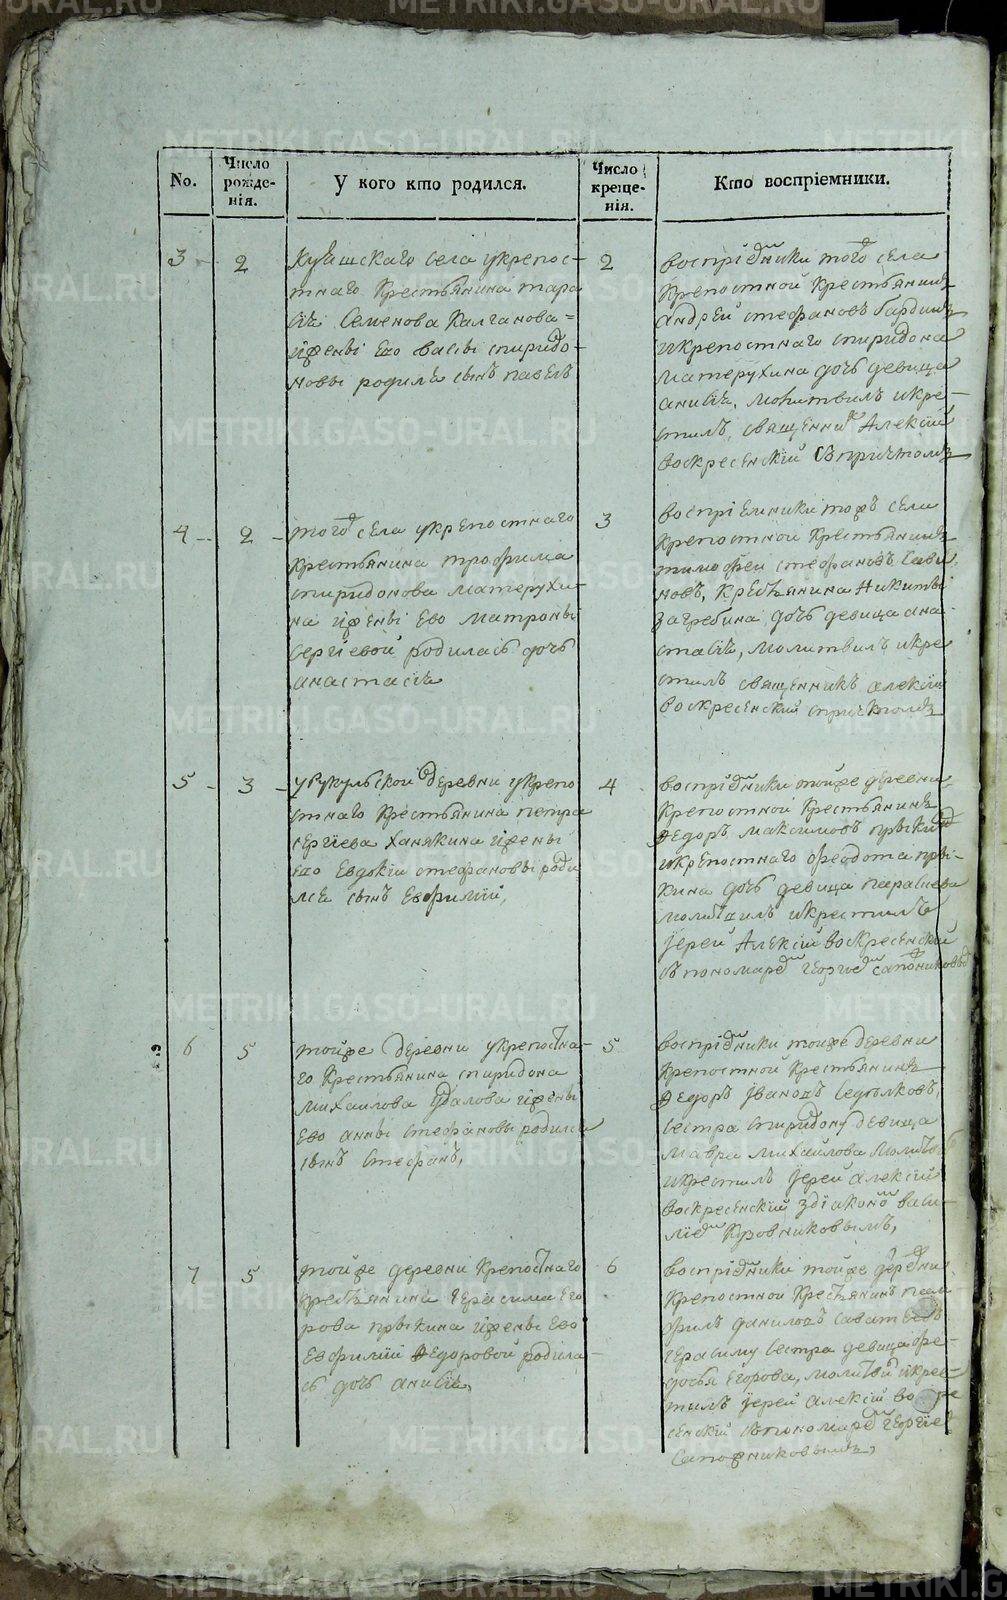 METRIKI.GASO-URAL.RU
No.
Число рожде-нія.
У кого кто родился.
Число креще-нія.
Кто воспріемники.
3 2
Кувашскаго села укрепос-
тнаго Крестьянина тара
сія Семенова Калганова=
ижены ево васы спиридо-
новы родился сынъ павелъ
2
воспріемники того села
Крепостной Крестьянинъ
андрей стефановъ
икрепостнаго спиридона
матерухина дочь девица
анисія, молитвилъ икре-
стилъ, священникъ Алексій
воскресенскій съпричтомъ
4 2
того села укрепостнаго
крестьянина трофима
спиридонова матерухи-
на ижены ево матроны
Сергіевой родилась дочь
анастасія
3
воспріемники тогожъ села
крепостной крестьянинъ
тимофеи стефановъ
крестьянина Никиты
Загребина дочь девица ана-
стасія, молитвилъ икре
стилъ священникъ алексій
воскресенскій спричтомъ
5 3
деревни укрепо
стнаго Крестьянина петра
сергіева Ханякина ижены
ево Евдокіи стефановы роди
лся сынъ Евфимій,
4
воспріемники тойже деревни
крепостной Крестьянинъ
Федоръ максимовъ
икрепостнаго феодота
дочь девица
молитвилъ икрестилъ
іерей Алексій воскресенскій
съ пономаремъ георгіемъ сапожниковымъ
6 5
тойже деревни укрепостна-
го Крестьянина спиридона
михаилова ижены
ево анны стефановы родился
сынъ Стефанъ,
5
воспріемники тойже деревни
крепостной крестьянинъ
Федоръ Івановъ
сестра спиридону девица
мавра михаилова
икрестилъ іерей алексій
воскресенскій здіакономъ васи-
ліемъ Кузовниковымъ,
7 5
тойже деревни крепостнаго
крестьянина герасима Его
рова ижены ево
Евфиміи Федоровой родила-
сь дочь анисія,
6
воспріемники тойже деревни
крепостной Крестьянинъ
даниловъ
герасиму сестра девица фе-
досья Егорова, икрес-
тилъ іерей алексій
съпономаремъ георгіем
Сапожниковымъ,